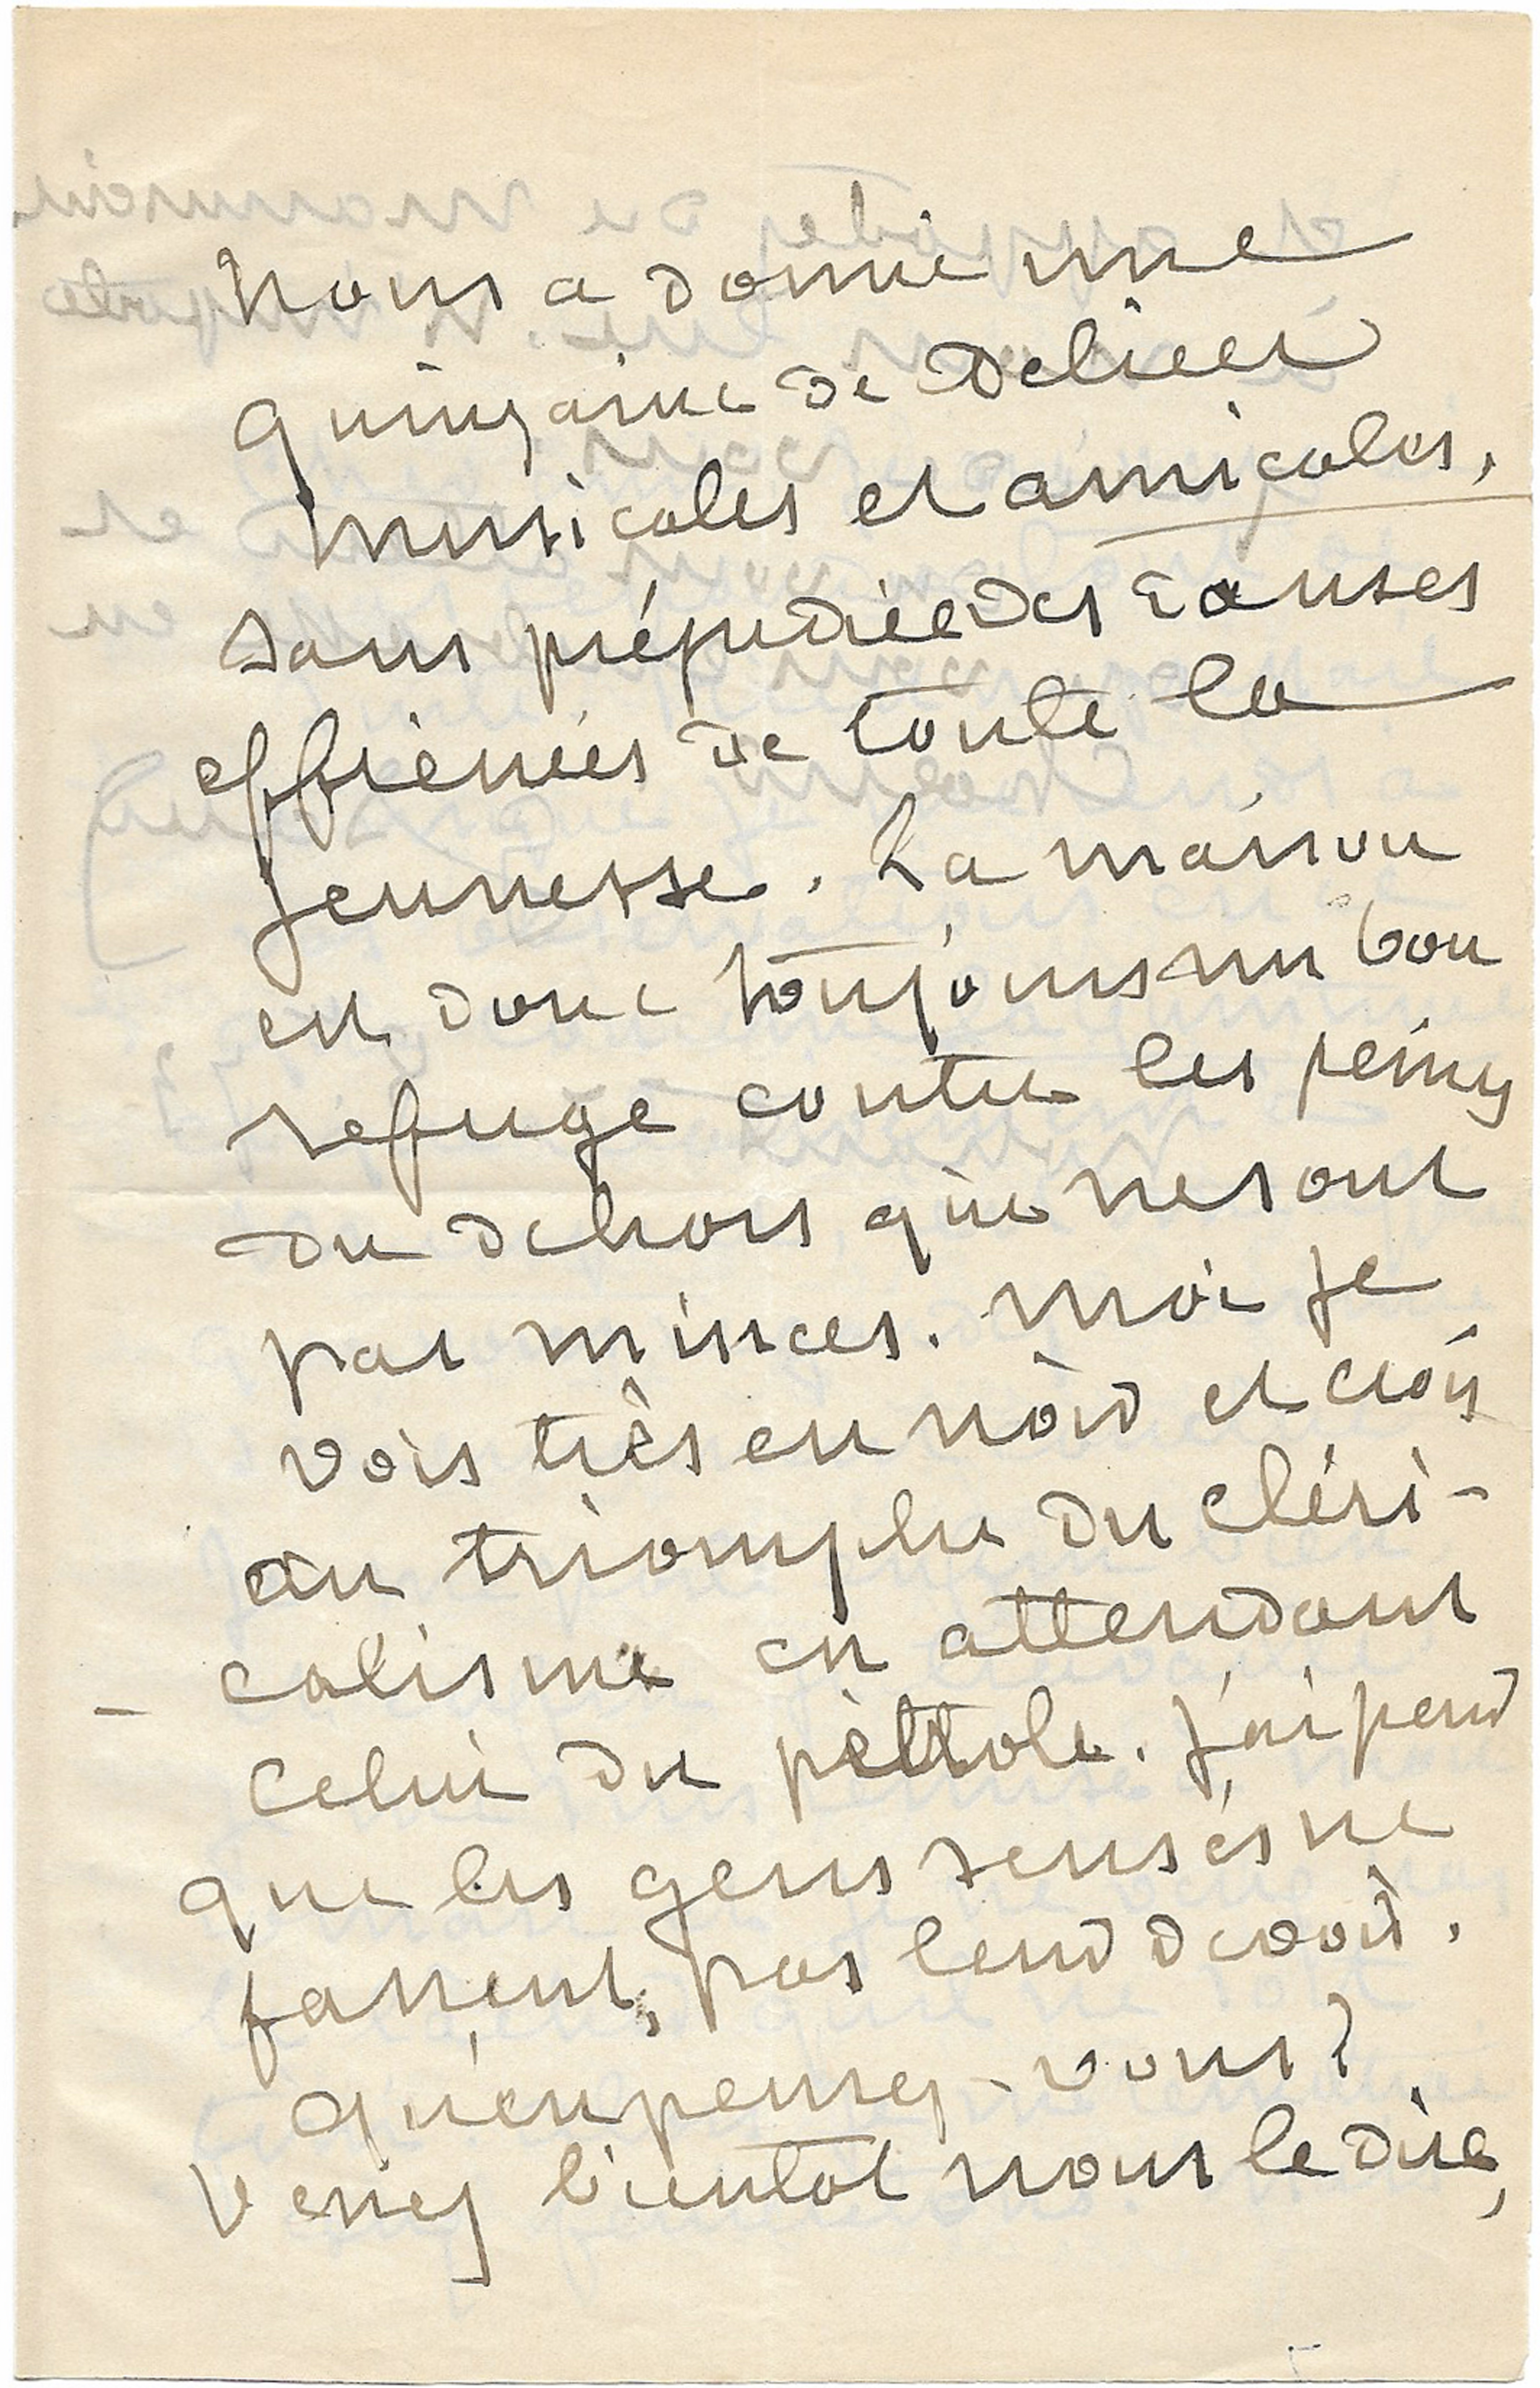 nous a donné une
quinzaine de délices
musicales et amicales,
sans préjudice des causes
effrénées de toute la
jeunesse. La maison
est donc toujours un bon
refuge contre les peines
du dehors qui ne sont
pas minces. Moi je
vois très en noir et crois
au triomphe du cléri-
-calisme en attendant
celui du pétrole. J'ai peur
que les gens sensés ne
fassent pas leur devoir.
Qu'en pensez-vous?
Venez bientôt nous le dire,